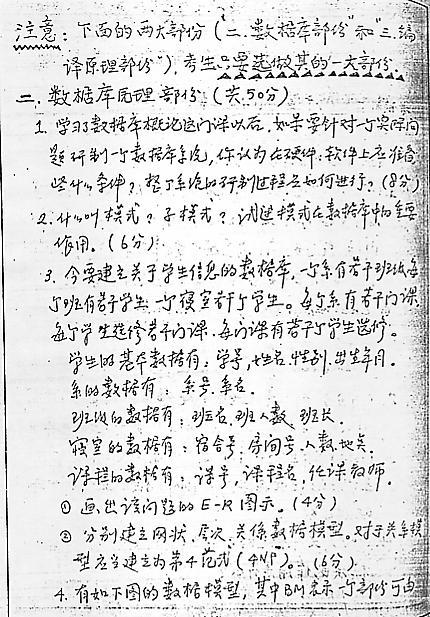 注意：下面的两大部份（"二.数据库部份"和"三.编
译原理部份"），考生只要选做其的一大部份。
二.数据库原理部份（共50分）
1.学习了数据库概论这门课以后，如果要针对一个实际问
题研制一个数据库系统，你认为在硬件.软件上应准备
些什么条件？整个系统的研制过程应如何进行？（8分）
2.什么叫模式？子模式？试述模式在数据库中的重要
作用。（6分）
3.今要建立关于学生信息的数据库，一个系有若干班级每
个班有若干学生一个寝室若干个学生。每个系有若干门课
每个学生选修若干门课.每门课有若干个学生选修。
学生的基本数据有：学号，姓名.性别.出生年月.
系的数据有：系号.系名.
班级的数据有：班名.班人数.班长.
寝室的数据有：宿舍号.房间号.人数.地点.
课程的数据有：课号，课程名，任课教师.
①画出该问题的E-R图示.（4分）
②分别建立网状.层次.关系数据模型.对于关系模
型应当建立为第4范式（4NF）。（6分）
4.有如下图的数据模型，其中BM表示一个部份可由